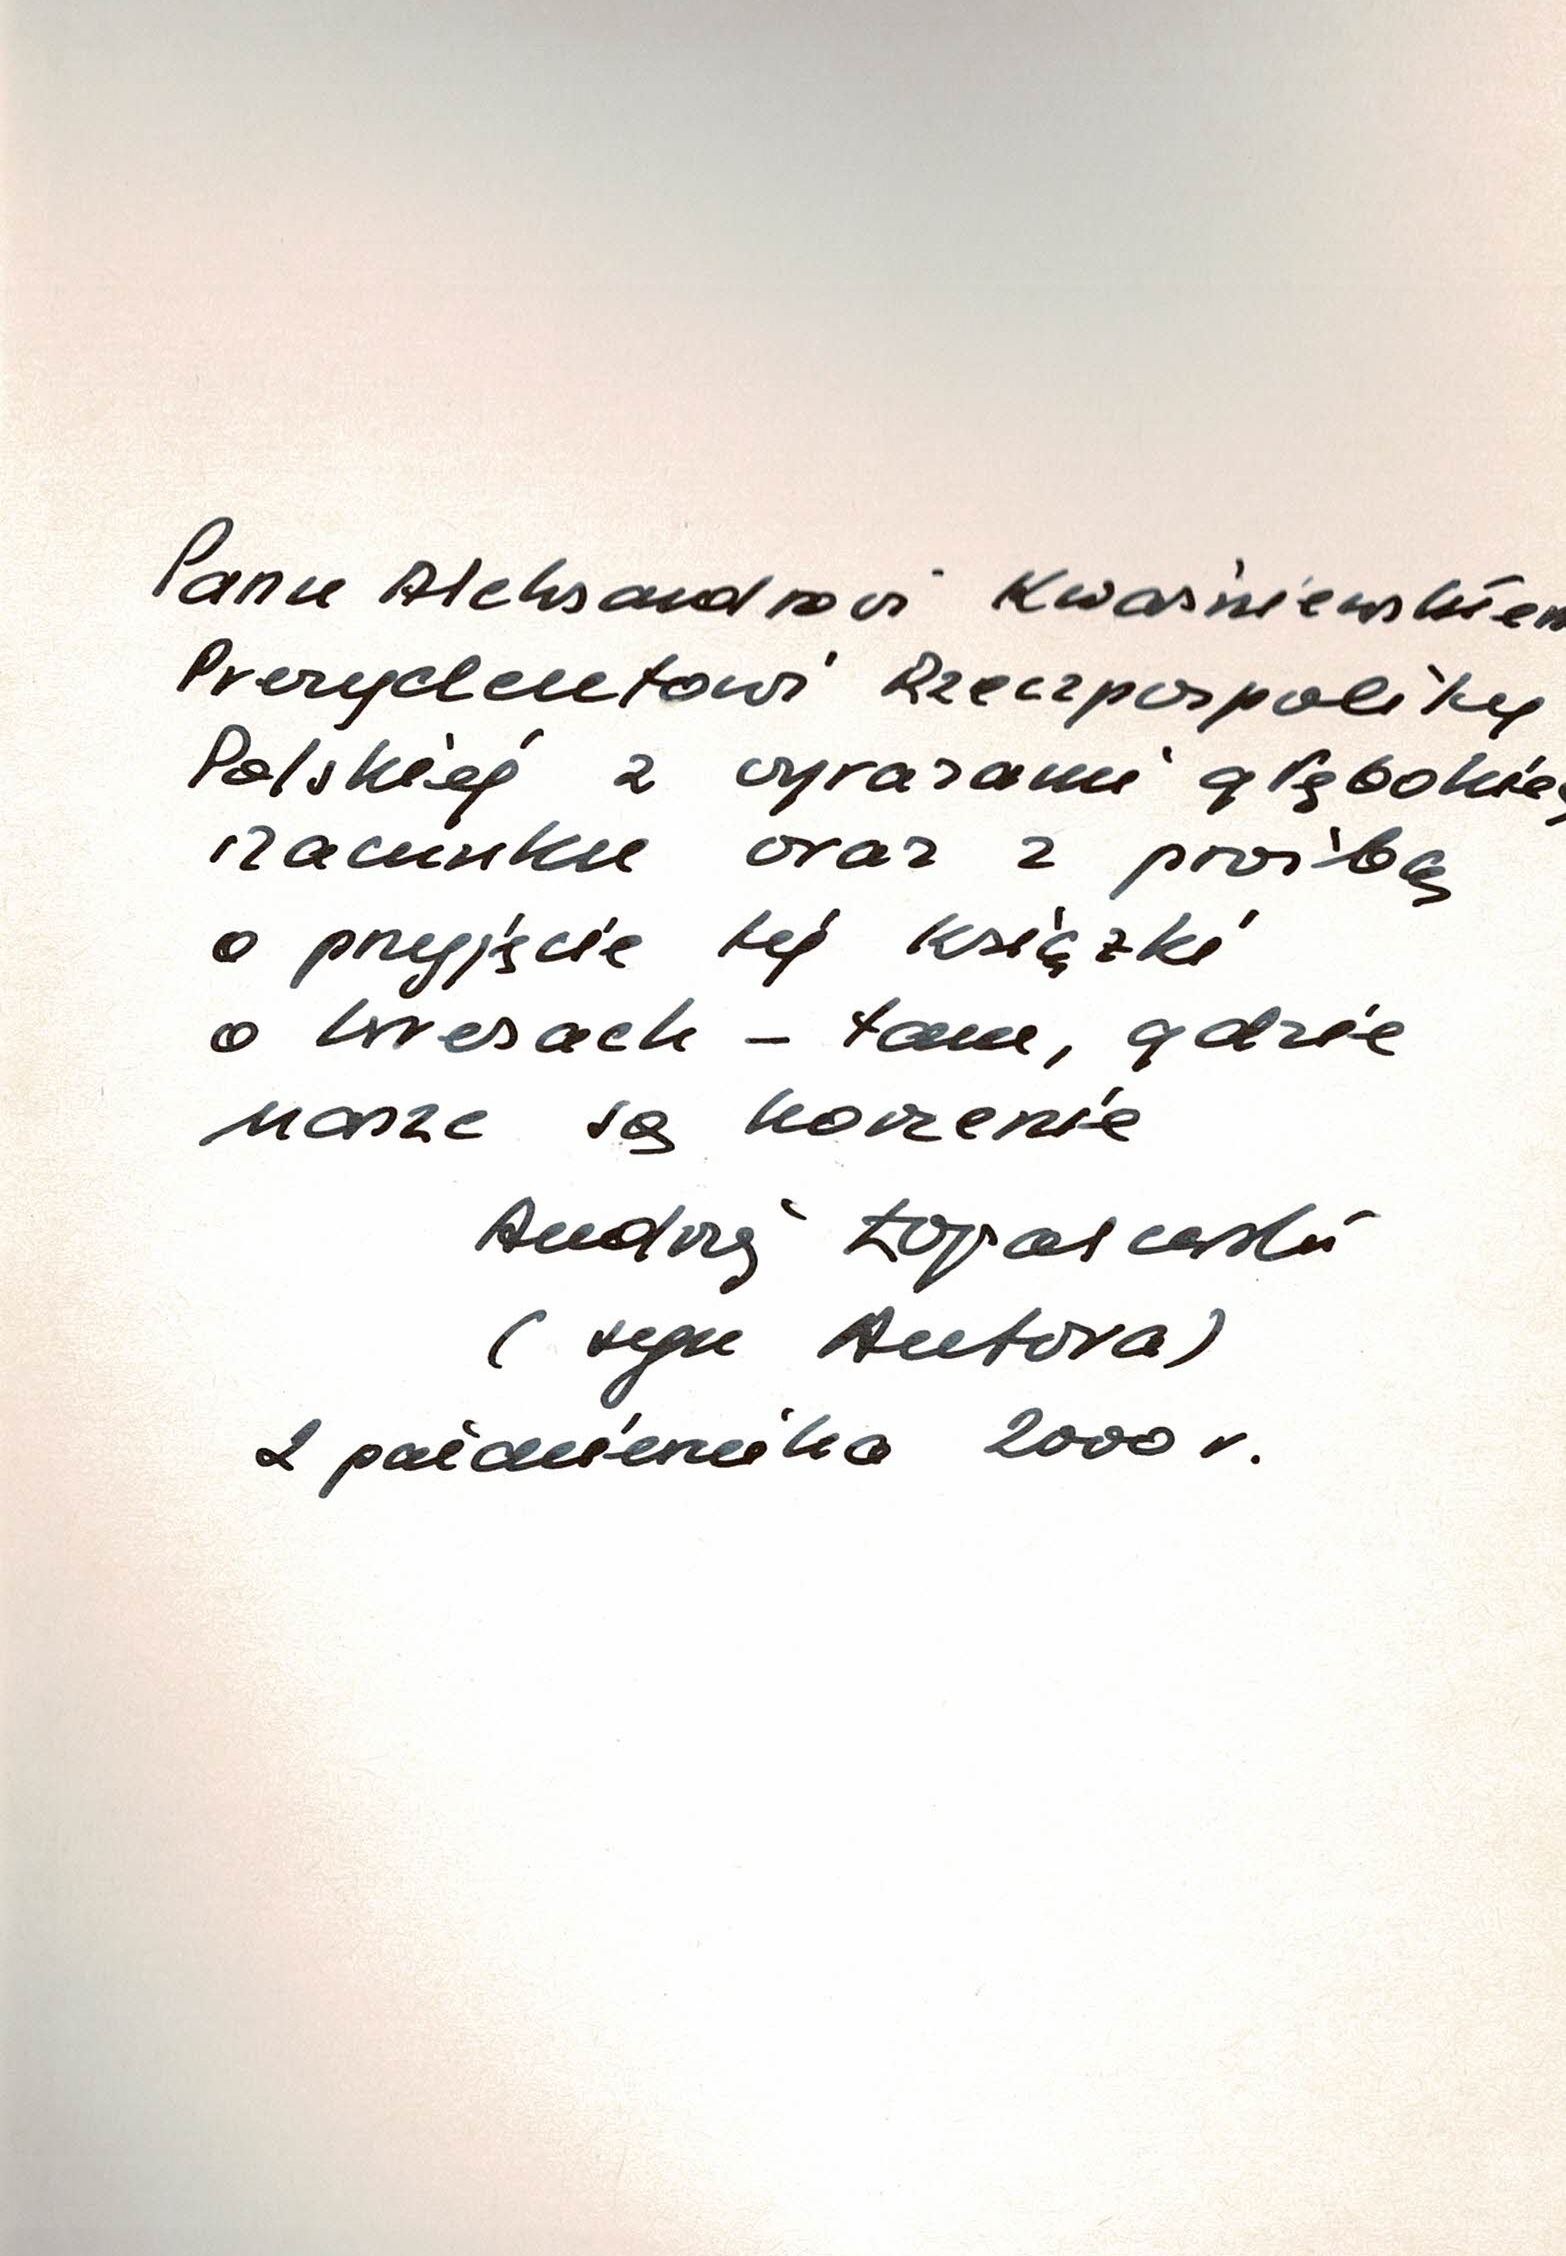 Panu Aleksandrowi Kwaśniewskiem
Prezydentowi Rzeczpospolitej
Polskiej z wyrazami głębokieg
szacunku oraz z prośbą
o przyjęcie tej książki
o kresach – tam, gdzie
nasze są korzenie
Andrzej Łopalewski
(syn Autora)
2 października 2000 r.